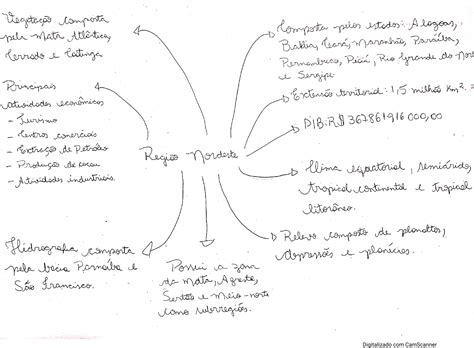 Vegetação composta
pela Mata Atlântica,
Cerrado e Catinga
Principais
atividades econômicas
- Turismo
- Centros comerciais
- Extração de Petróleo
- Produção de cacau
- Atividades industriais.
Hidrografia composta
pela bacia Parnaíba e
São Francisco.
Região Nordeste
Possui a zona
da Mata, Agreste,
Sertão e Meio-norte
como subregiões.
Composta pelos estados: Alagoas,
Bahia, Ceará, Maranhão, Paraíba,
Pernambuco, Piauí, Rio Grande do Norte
e Sergipe.
Extensão territorial: 1,5 milhão Km².
PIB: R$ 367861916 000,00
Clima equatorial, semiárido,
tropical continental e tropical
litorâneo.
Relevo composto de planaltos,
depressões e planícies.
Digitalizado com CamScanner